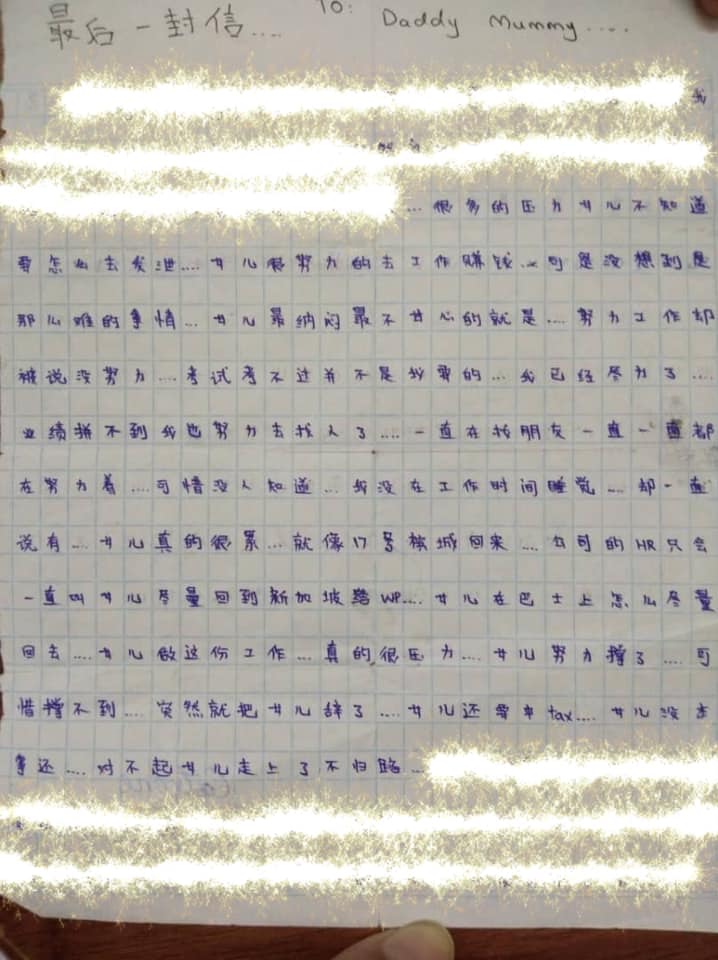 最后一封信.... TO: Daddy Mummy....
我
...很多的压力女儿不知道
要怎么去发泄....女儿很努力的去工作赚钱...可是没想到是
那么难的事情...女儿最纳闷最不甘心的就是....努力工作却
被说没努力....考试考不过并不是我要的...我已经尽力了....
业绩拼不到我也努力去找人了....一直在找朋友一直一直都
在努力着....可惜没人知道...我没在工作时间睡觉....却一直
说有....女儿真的很累...就像17号槟城回来....公司的HR只会
一直叫女儿尽量回到新加坡 WP....女儿在巴士上怎么尽量
回去....女儿做这份工作...真的很压力....女儿努力撑了....可
惜撑不到....突然就把女儿辞了....女儿还要 tax....女儿没本
事还....对不起女儿走上了不归路...